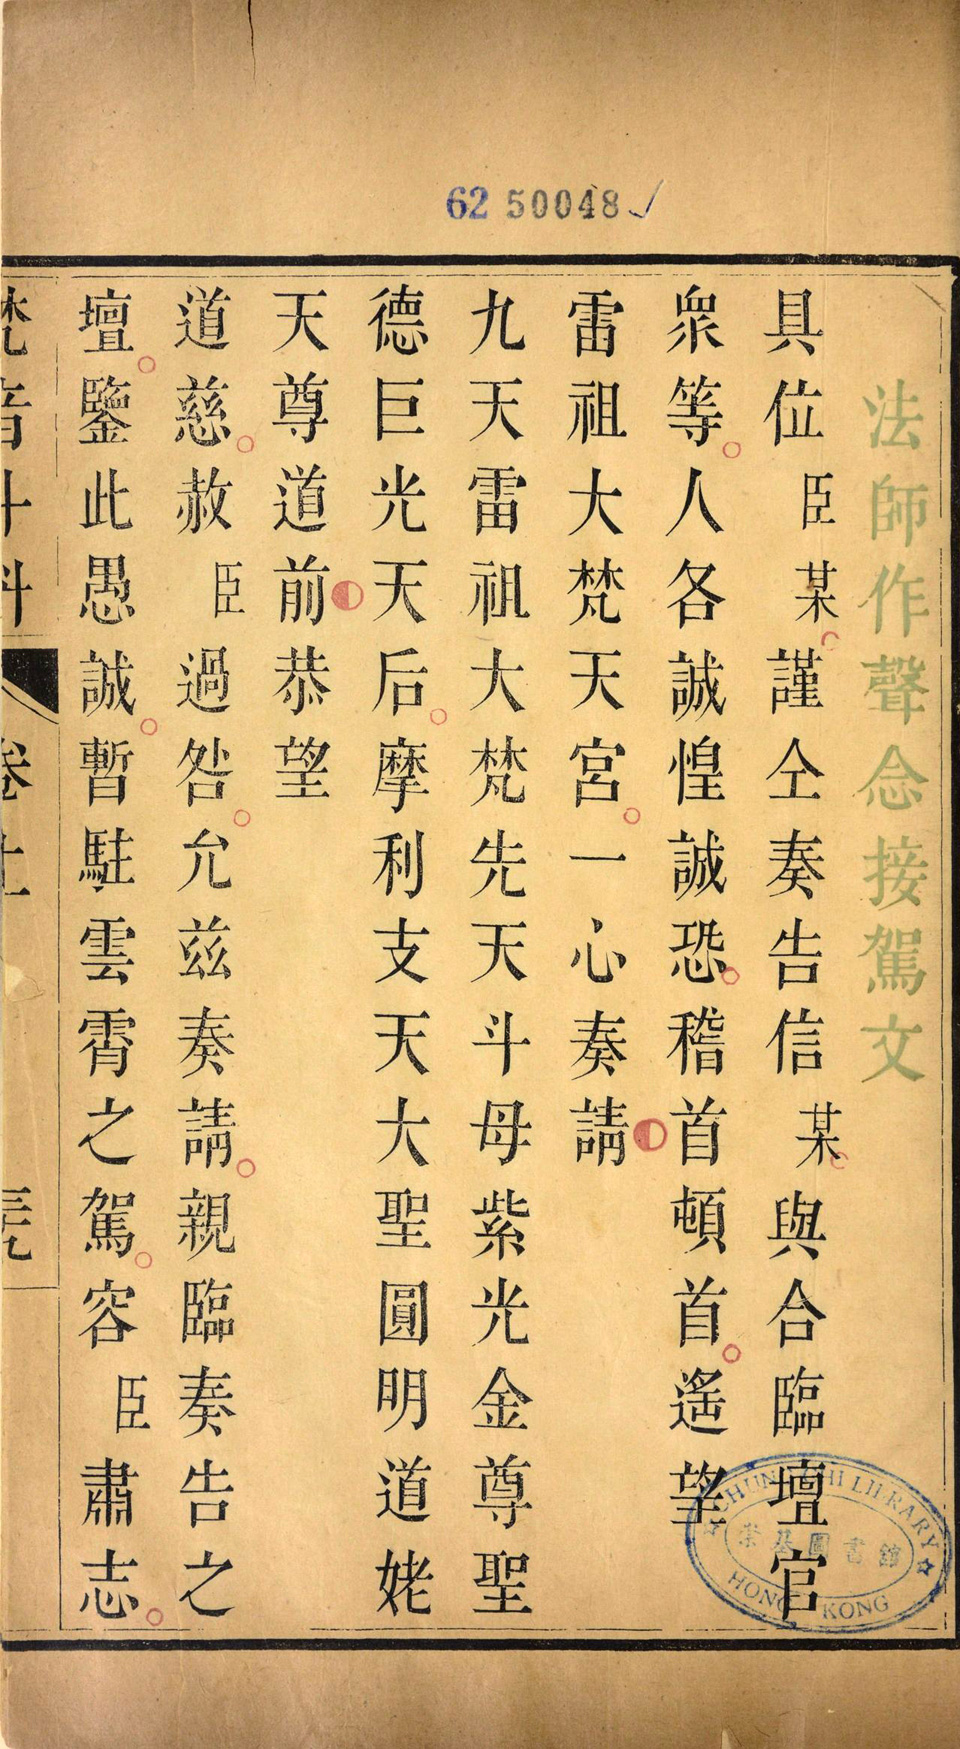 62 50048
法師作聲念接駕文
具位臣某謹仝奏告信某與合臨壇官
衆等人各誠惶誠恐稽首頓首遙望
雷祖大梵天宮一心奏請
九天雷祖大梵先天斗母紫光金尊聖
德巨光天后摩利支天大聖圓明道姥
天尊道前恭望
道慈赦臣過咎允兹奏請親臨奏告之
壇鑒此愚誠暫駐雲霄之駕容臣肅志
梵音斗科 卷上
CHUNG CHI LIBRARY
崇基圖書館
HONG KONG